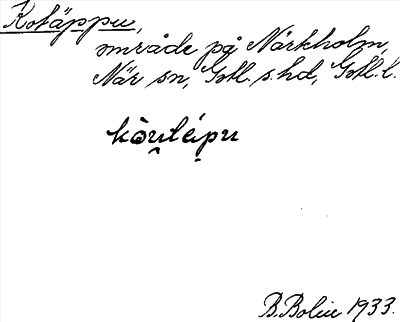 Kotäppu,
område på Närkholm,
När sn, Gotl. s. hd, Gotl. l.
kòu̯tépu
B. Bolin 1933.